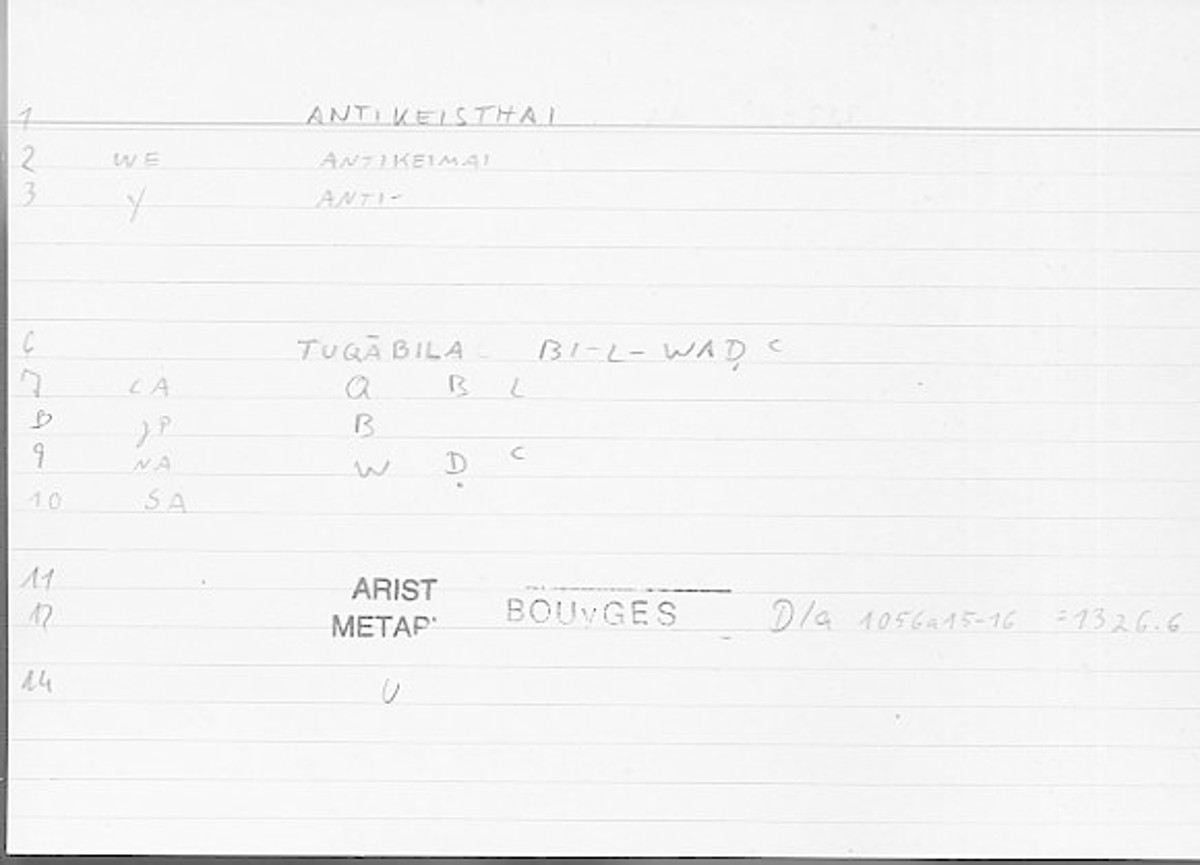 1 ANTIKEISTHAI
2 WE ANTIKEIMAI
3 Y ANTI-
6 TUQĀBILA BI-L-WAḌ ᶜ
7 LA Q B L
8 JP B
9 NA W Ḍ ᶜ
10 SA
11 ARIST
12 METAP BOUYGES D/a 1056a15-16 =1326.6
14 U